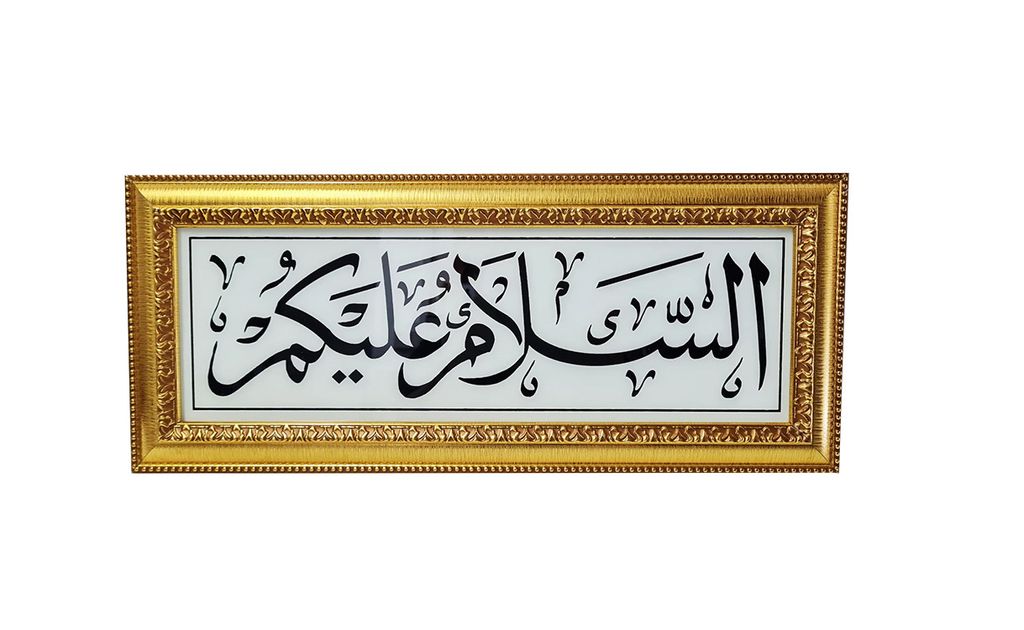 السلام عليكم